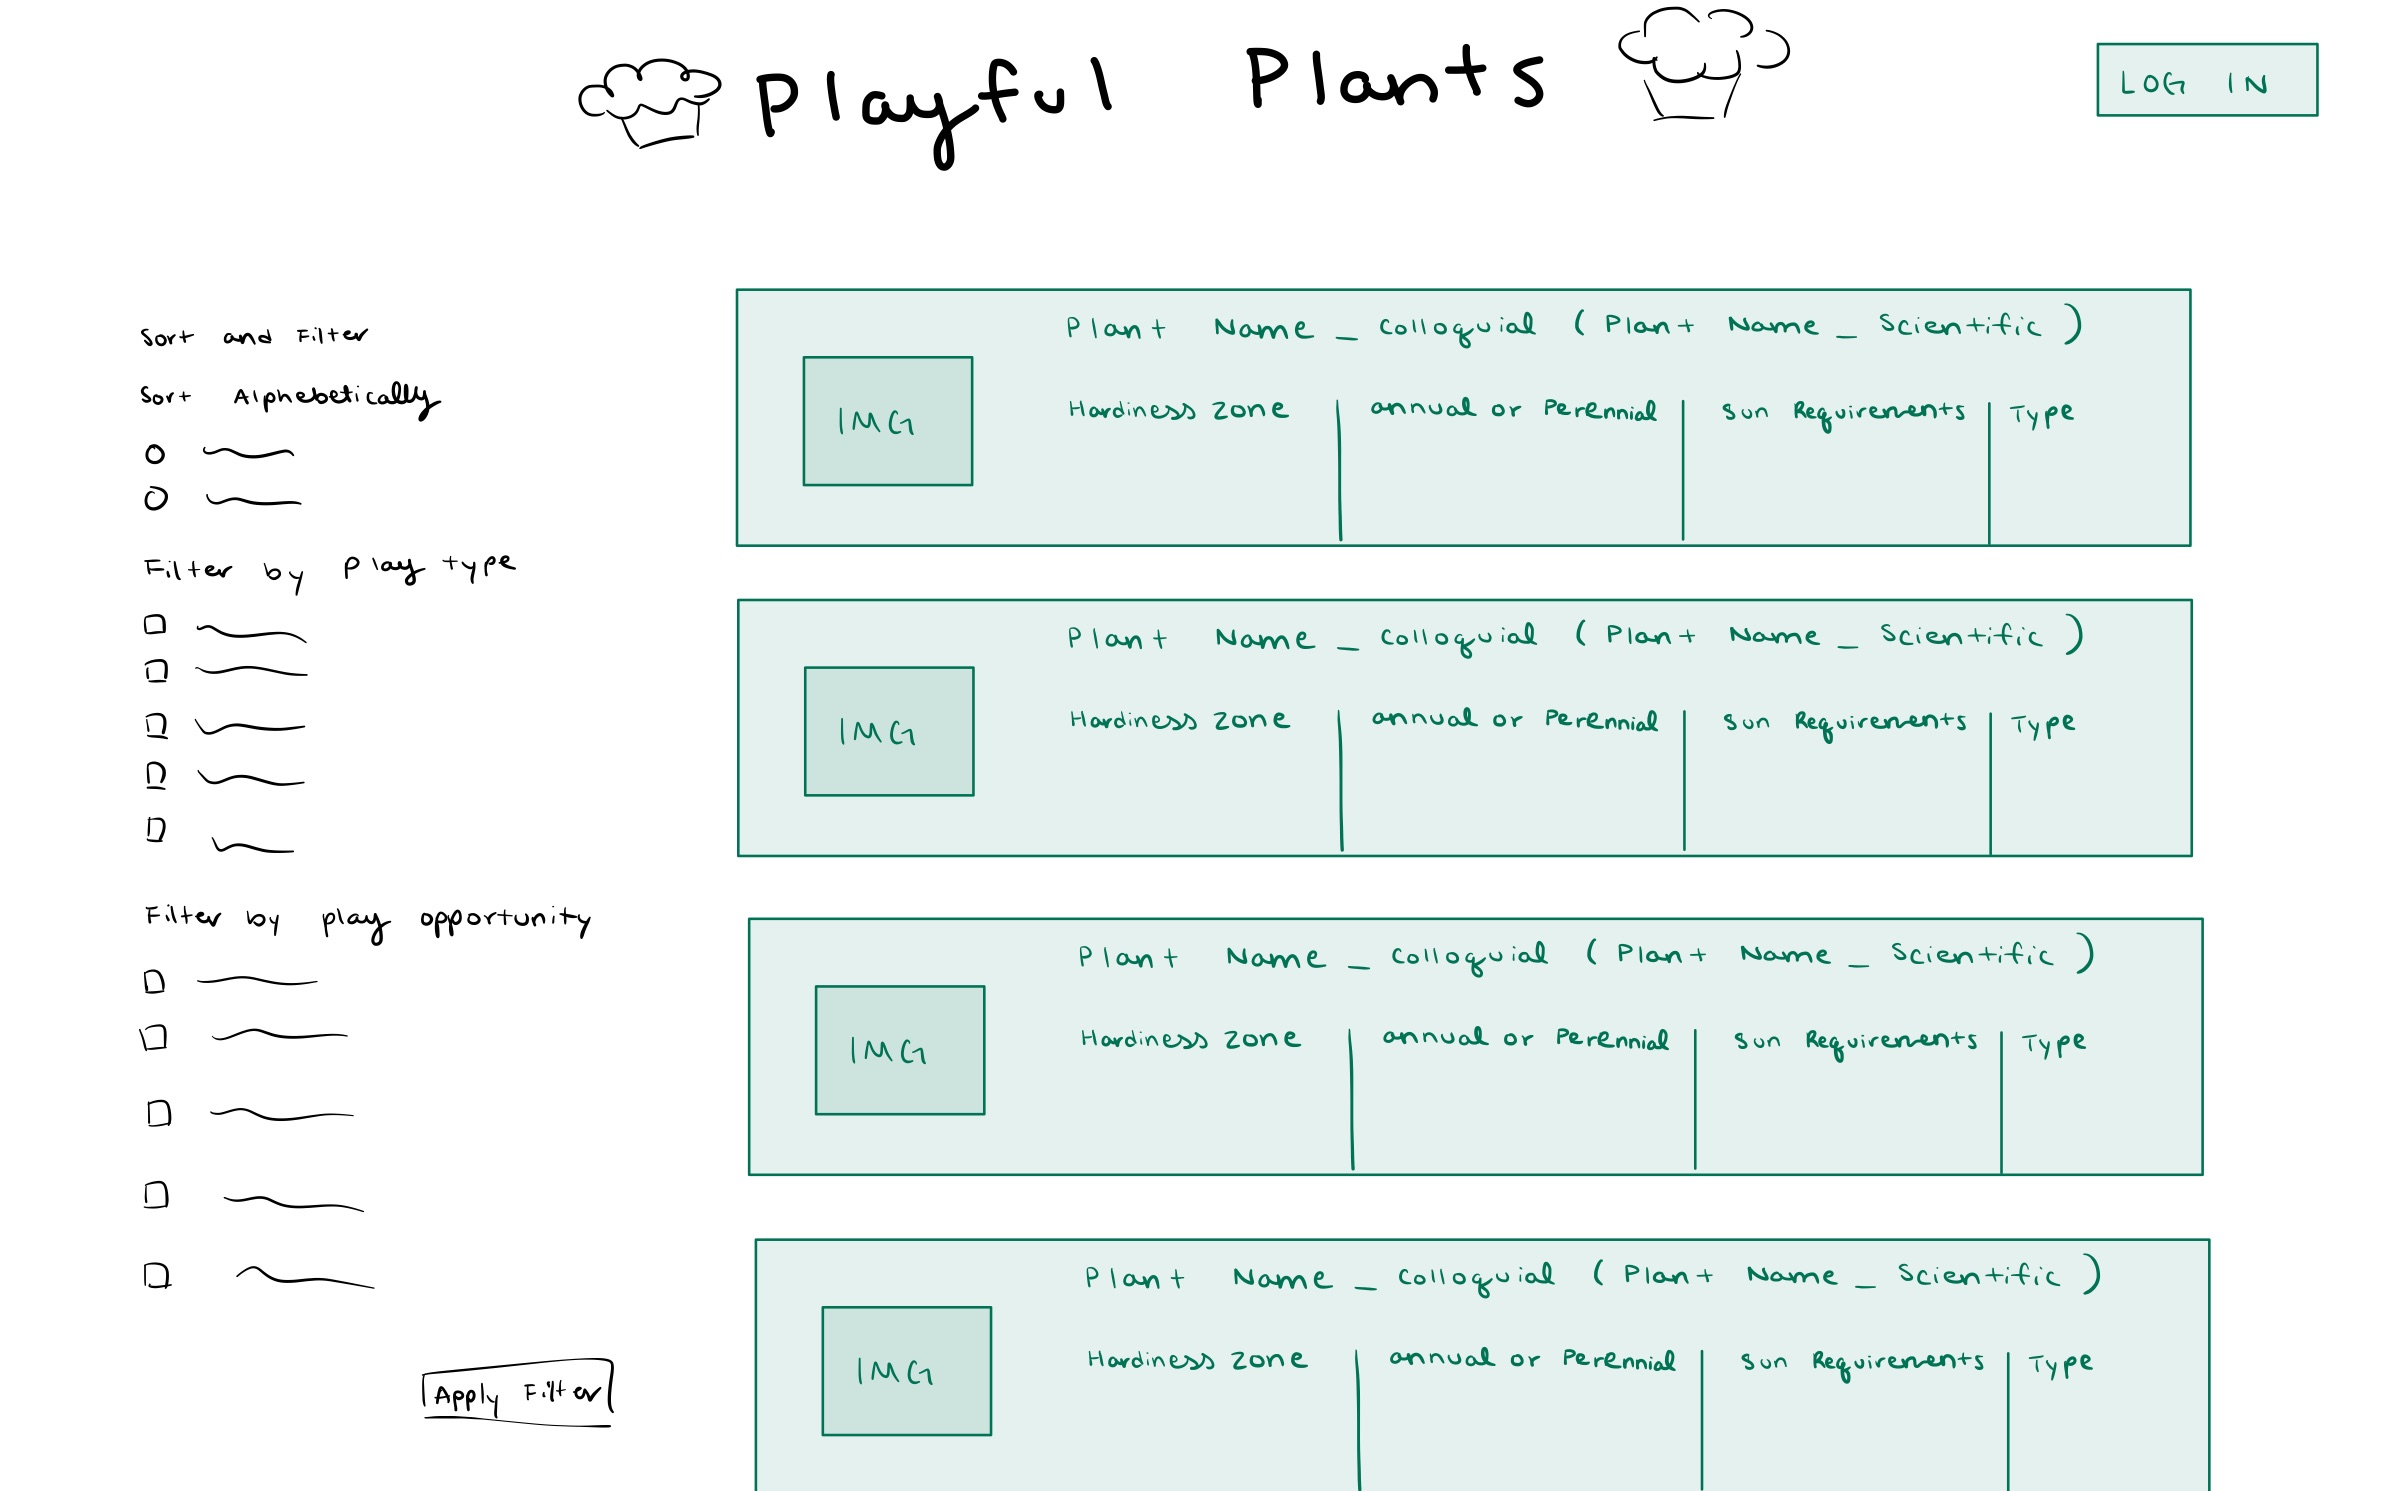 Playful Plants
LOG IN
Sort and Filter
Sort Alphebetically
Filter by Play type
Filter by play opportunity
Apply Filter
Plant Name _ Colloquial (Plant Name _ Scientific)
IMG
Hardiness Zone
annual or Perennial
Sun Requirements
Type
Plant Name _ Colloquial (Plant Name _ Scientific)
IMG
Hardiness Zone
annual or Perennial
Sun Requirements
Type
Plant Name _ Colloquial (Plant Name _ Scientific)
IMG
Hardiness Zone
annual or Perennial
Sun Requirements
Type
Plant Name _ Colloquial (Plant Name _ Scientific)
IMG
Hardiness Zone
annual or Perennial
Sun Requirements
Type